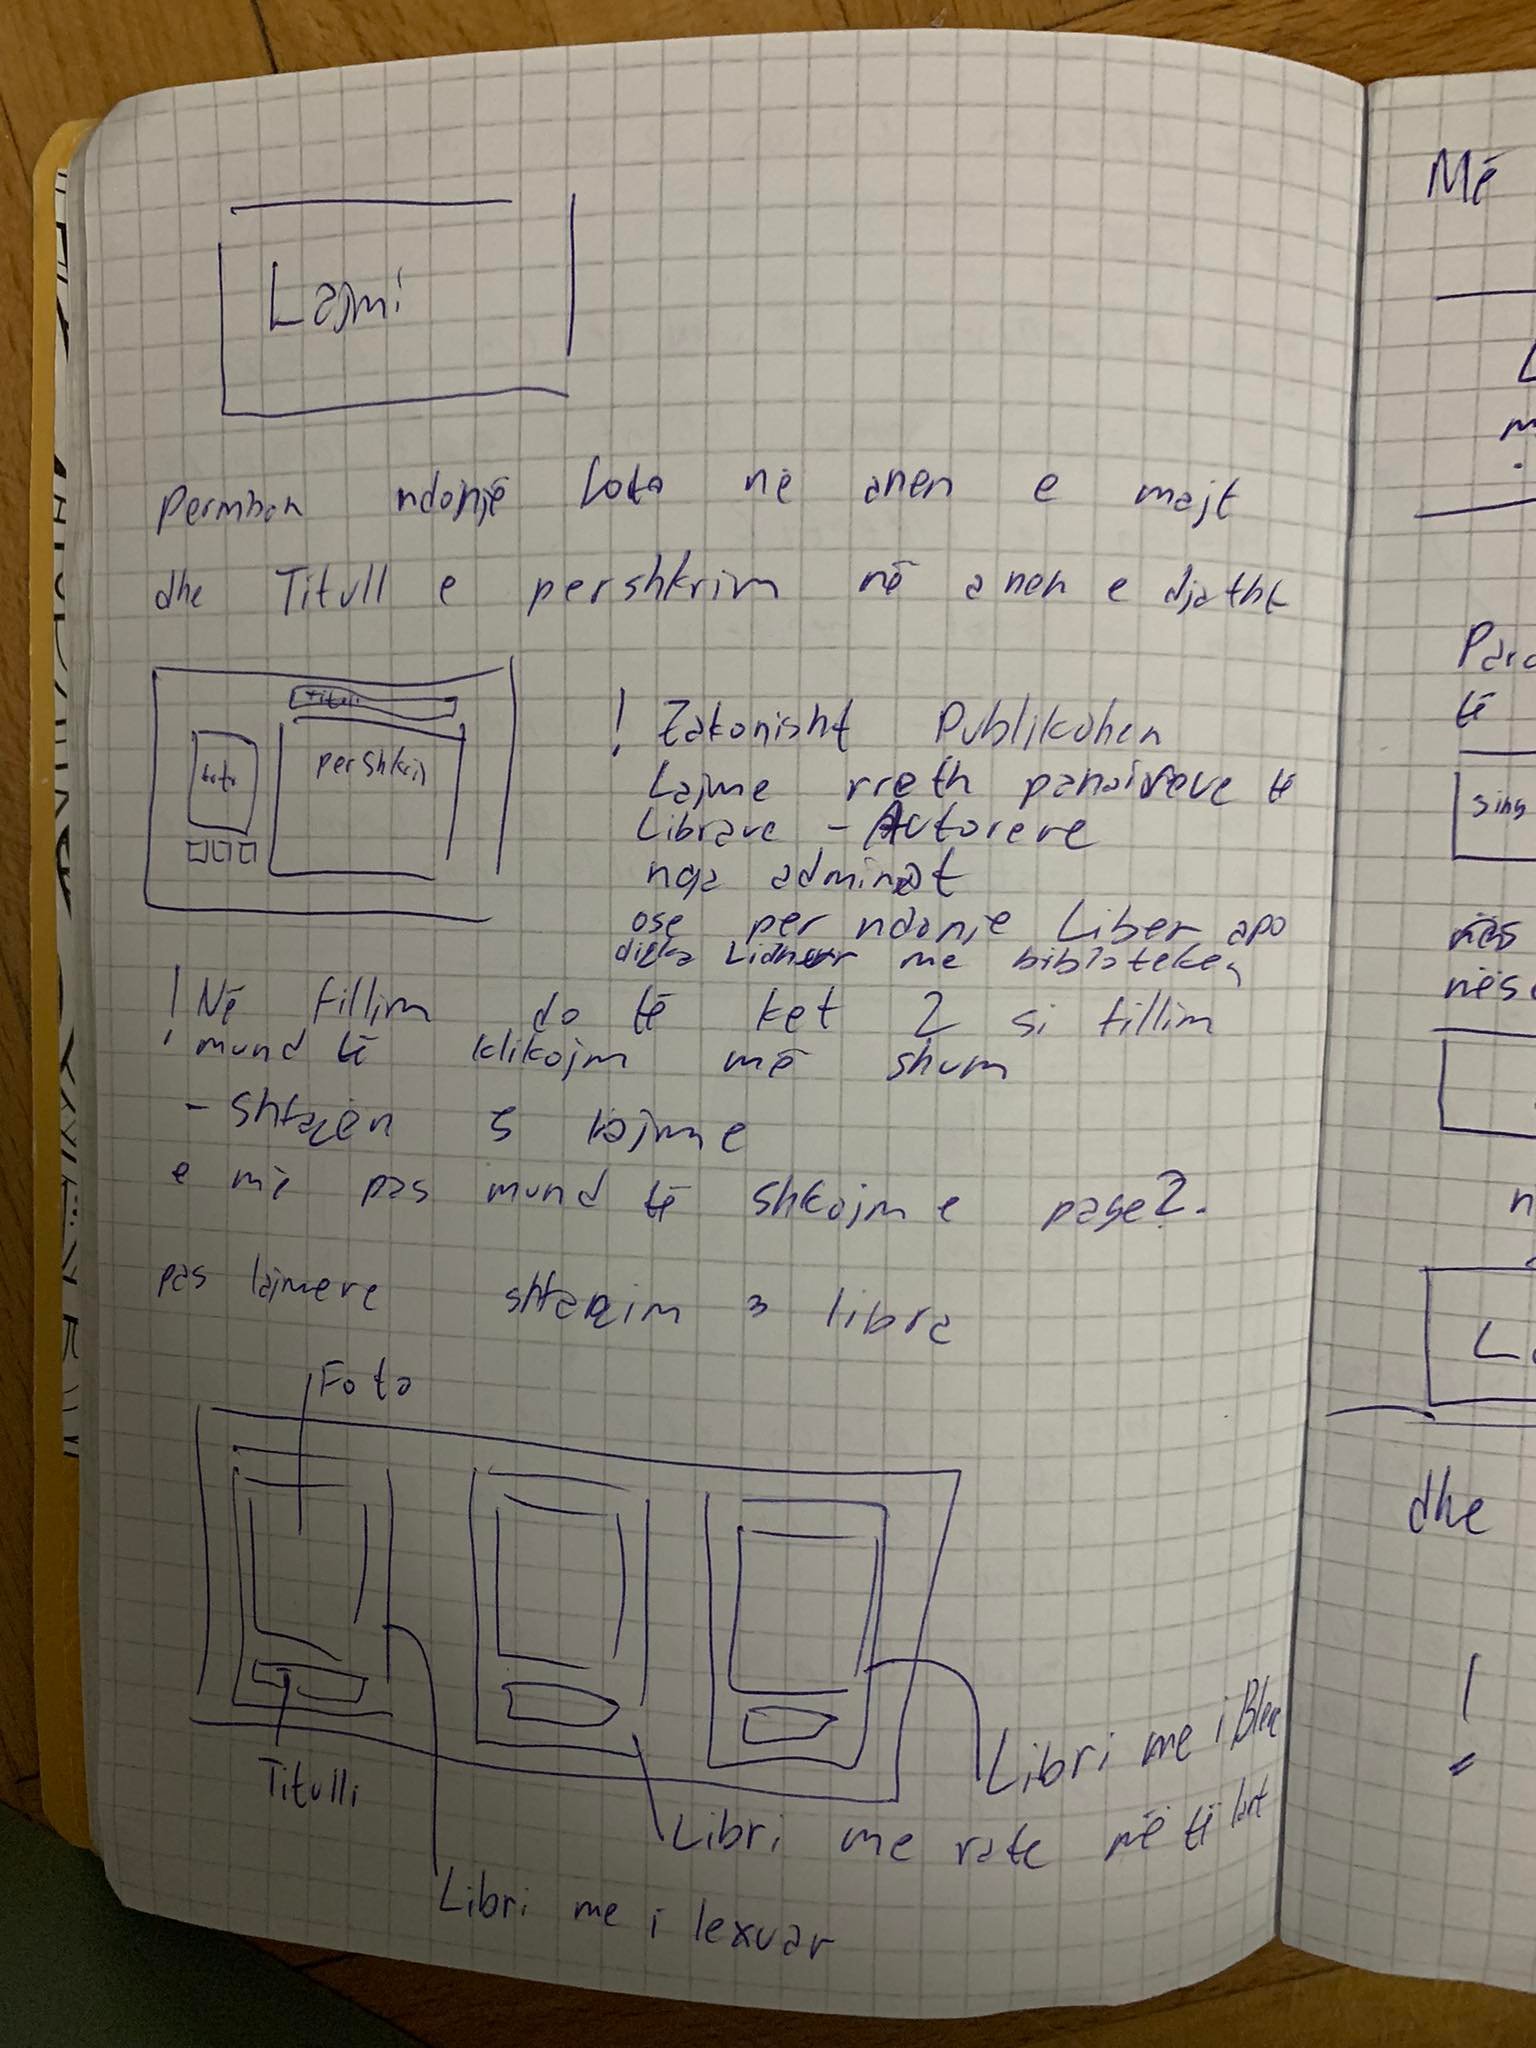 Lajmi
Permban ndonjë foto në anen e majt
dhe Titull e pershkrim në anen e djatht
titulli
foto
pershkrim
! Zakonisht Publikohen
Lajme rreth panaireve të
Librave - Autoreve
nga adminat
ose per ndonje Liber apo
diçka Lidhur me biblioteken
! Në fillim do të ket 2 si fillim
! mund të klikojm më shum
- shfaqen 5 lajme
e më pas mund të shkojm e page 2.
pas lajmeve shfaqim 3 libra
Foto
Titulli
Libri me i Blere
Libri me rate më të lart
Libri me i lexuar
Më
L
m
.
Para
të
sing
nës
n
La
dhe
!